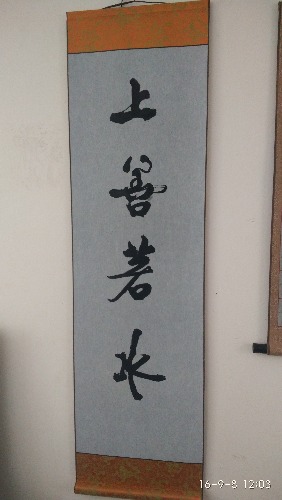 上善若水
16-9-8 12:03